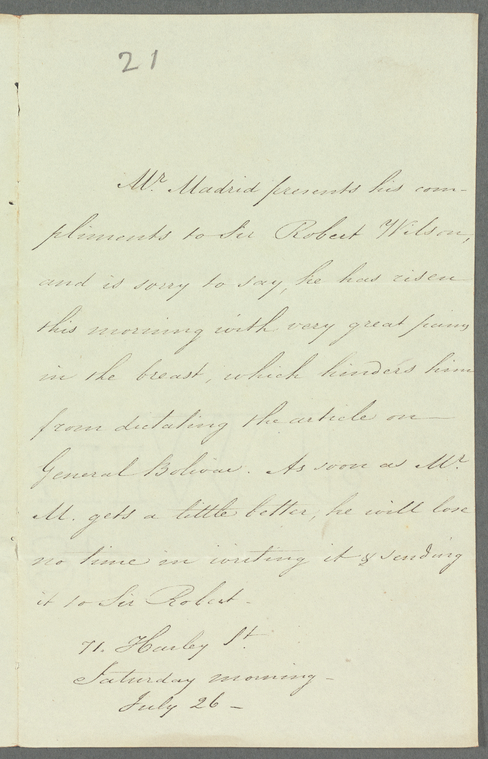 21
Mr. Madrid presents his com-
pliments to Sir Robert Wilson,
and is sorry to say, he has risen
this morning with very great pains
in the breast, which hinders him
from dictating the article on
General Bolivar. As soon as Mr.
M. gets a little better, he will lose
no time in writing it & sending
it to Sir Robert.
71. Harley St.
Saturday morning -
July 26 -